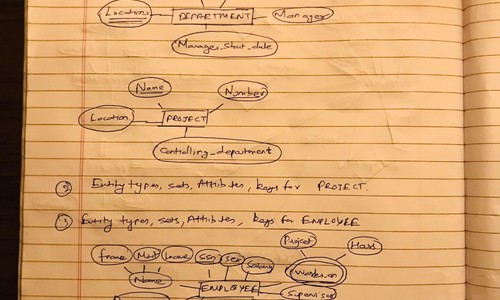 Location
DEPARTMENT
Manager
Manager_start_date
Name
Number
Location
PROJECT
Controlling_department
② Entity types, sets, Attributes, keys for PROJECT.
③ Entity types, sets, Attributes, keys for EMPLOYEE
Project
Hours
fname
Minit
lname
SSN
Sex
Salary
Works_on
Name
EMPLOYEE
Supervisor